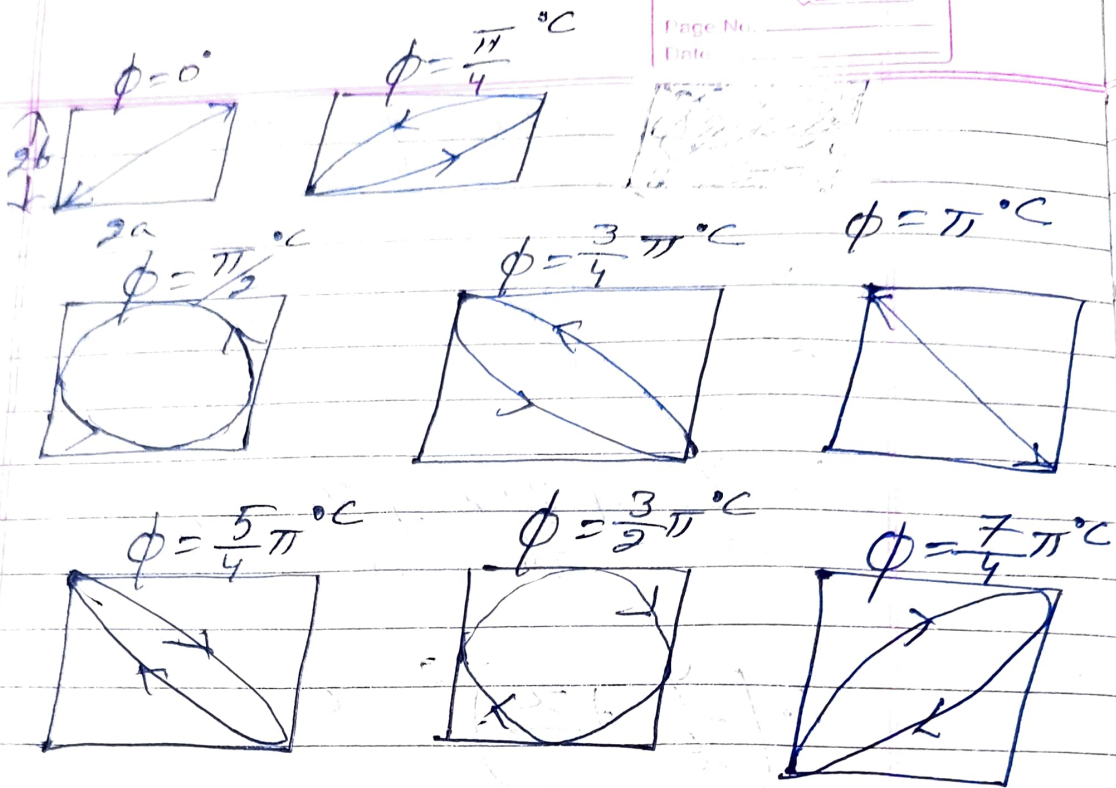 Page No.
Date
ϕ = 0° ϕ = π/4 °C
2b
2a
ϕ = π/2 °C ϕ = 3/4 π °C ϕ = π °C
ϕ = 5/4 π °C ϕ = 3/2 π °C ϕ = 7/4 π °C